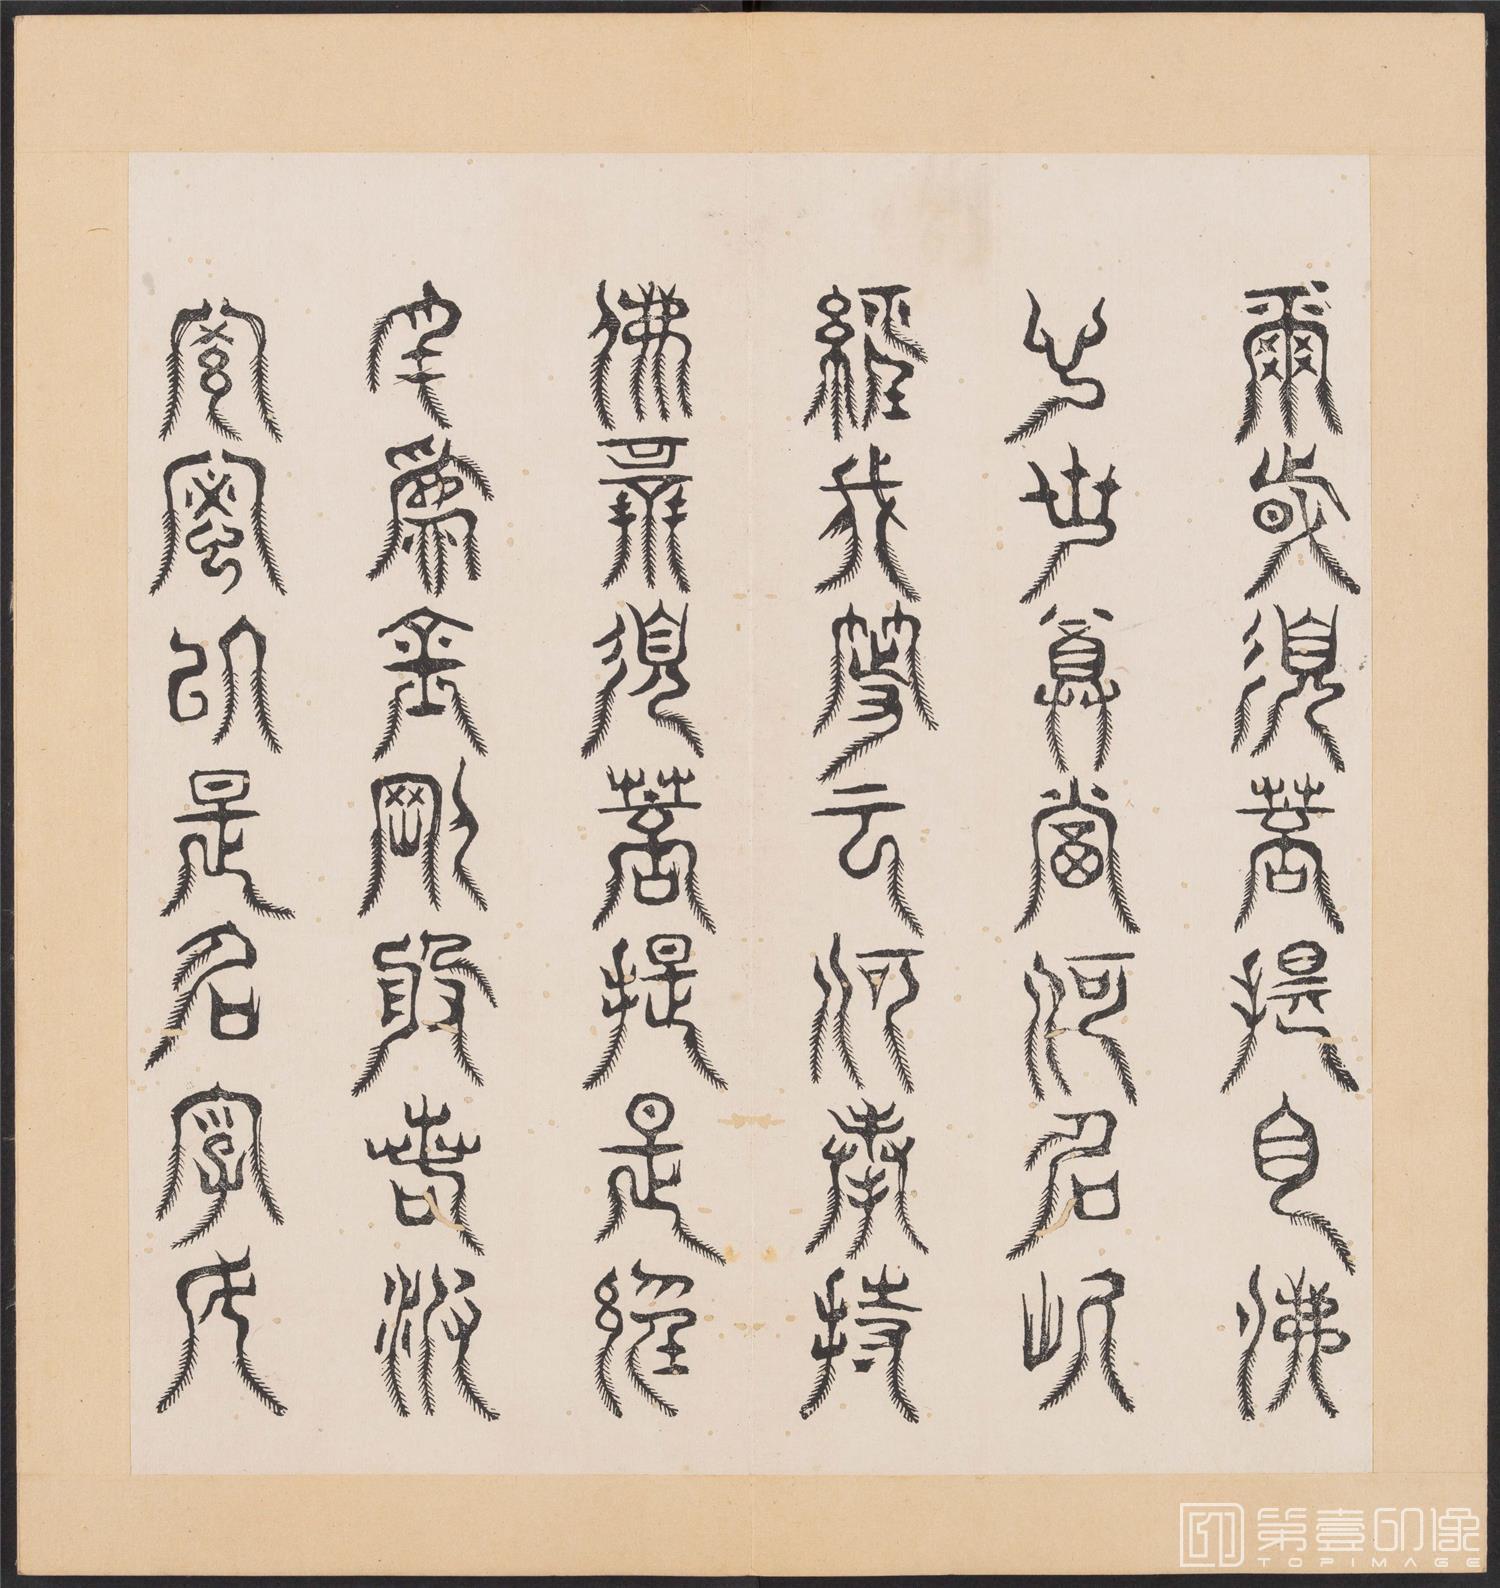 爾時須菩提白佛
言世尊當何名此
經我等云何奉持
佛告須菩提是經
名為金剛般若波
羅蜜以是名字汝
第壹印像
TOPIMAGE